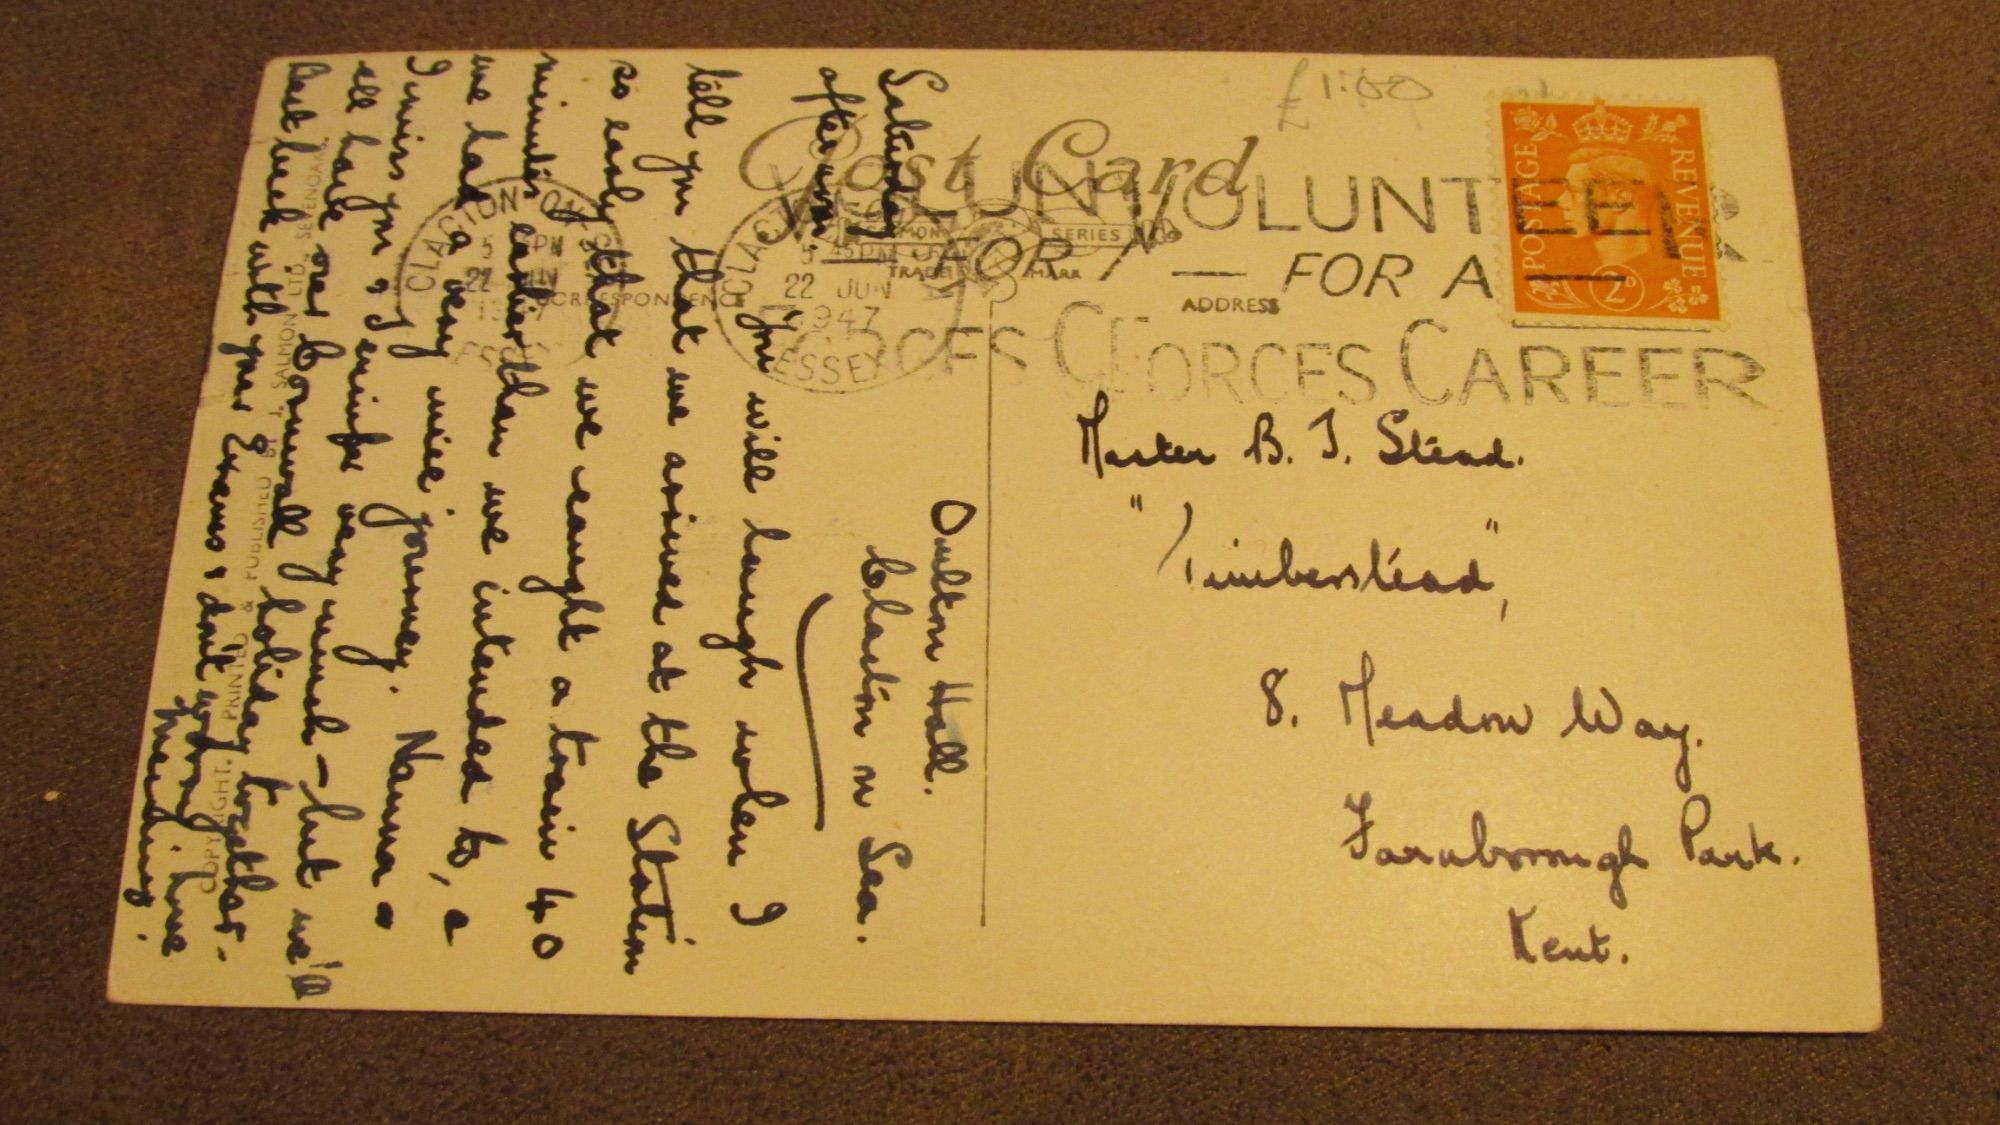 £1.00
Post Card
SALMON SERIES
TRADE MARK
CORRESPONDENCE
ADDRESS
POSTAGE REVENUE
2D
VOLUNTEER
FOR A
FORCES CAREER
CLACTON-ON-SEA
5 45 PM
22 JUN
1947
ESSEX
Master B. J. Stead.
"Timberstead",
8. Meadow Way.
Farnborough Park.
Kent.
Oulton Hall.
Clacton n Sea.
Saturday
afternoon.
You will laugh when I
tell you that we arrived at the Station
so early that we caught a train 40
minutes earlier than we intended to, &
we had a very nice journey. Nanna &
I miss you & Jennifer very much - but we'll
all have our Cornwall holiday together.
Best luck with your Exams & don't worry
COPYRIGHT. PRINTED & PUBLISHED BY J. SALMON LTD. SEVENOAKS